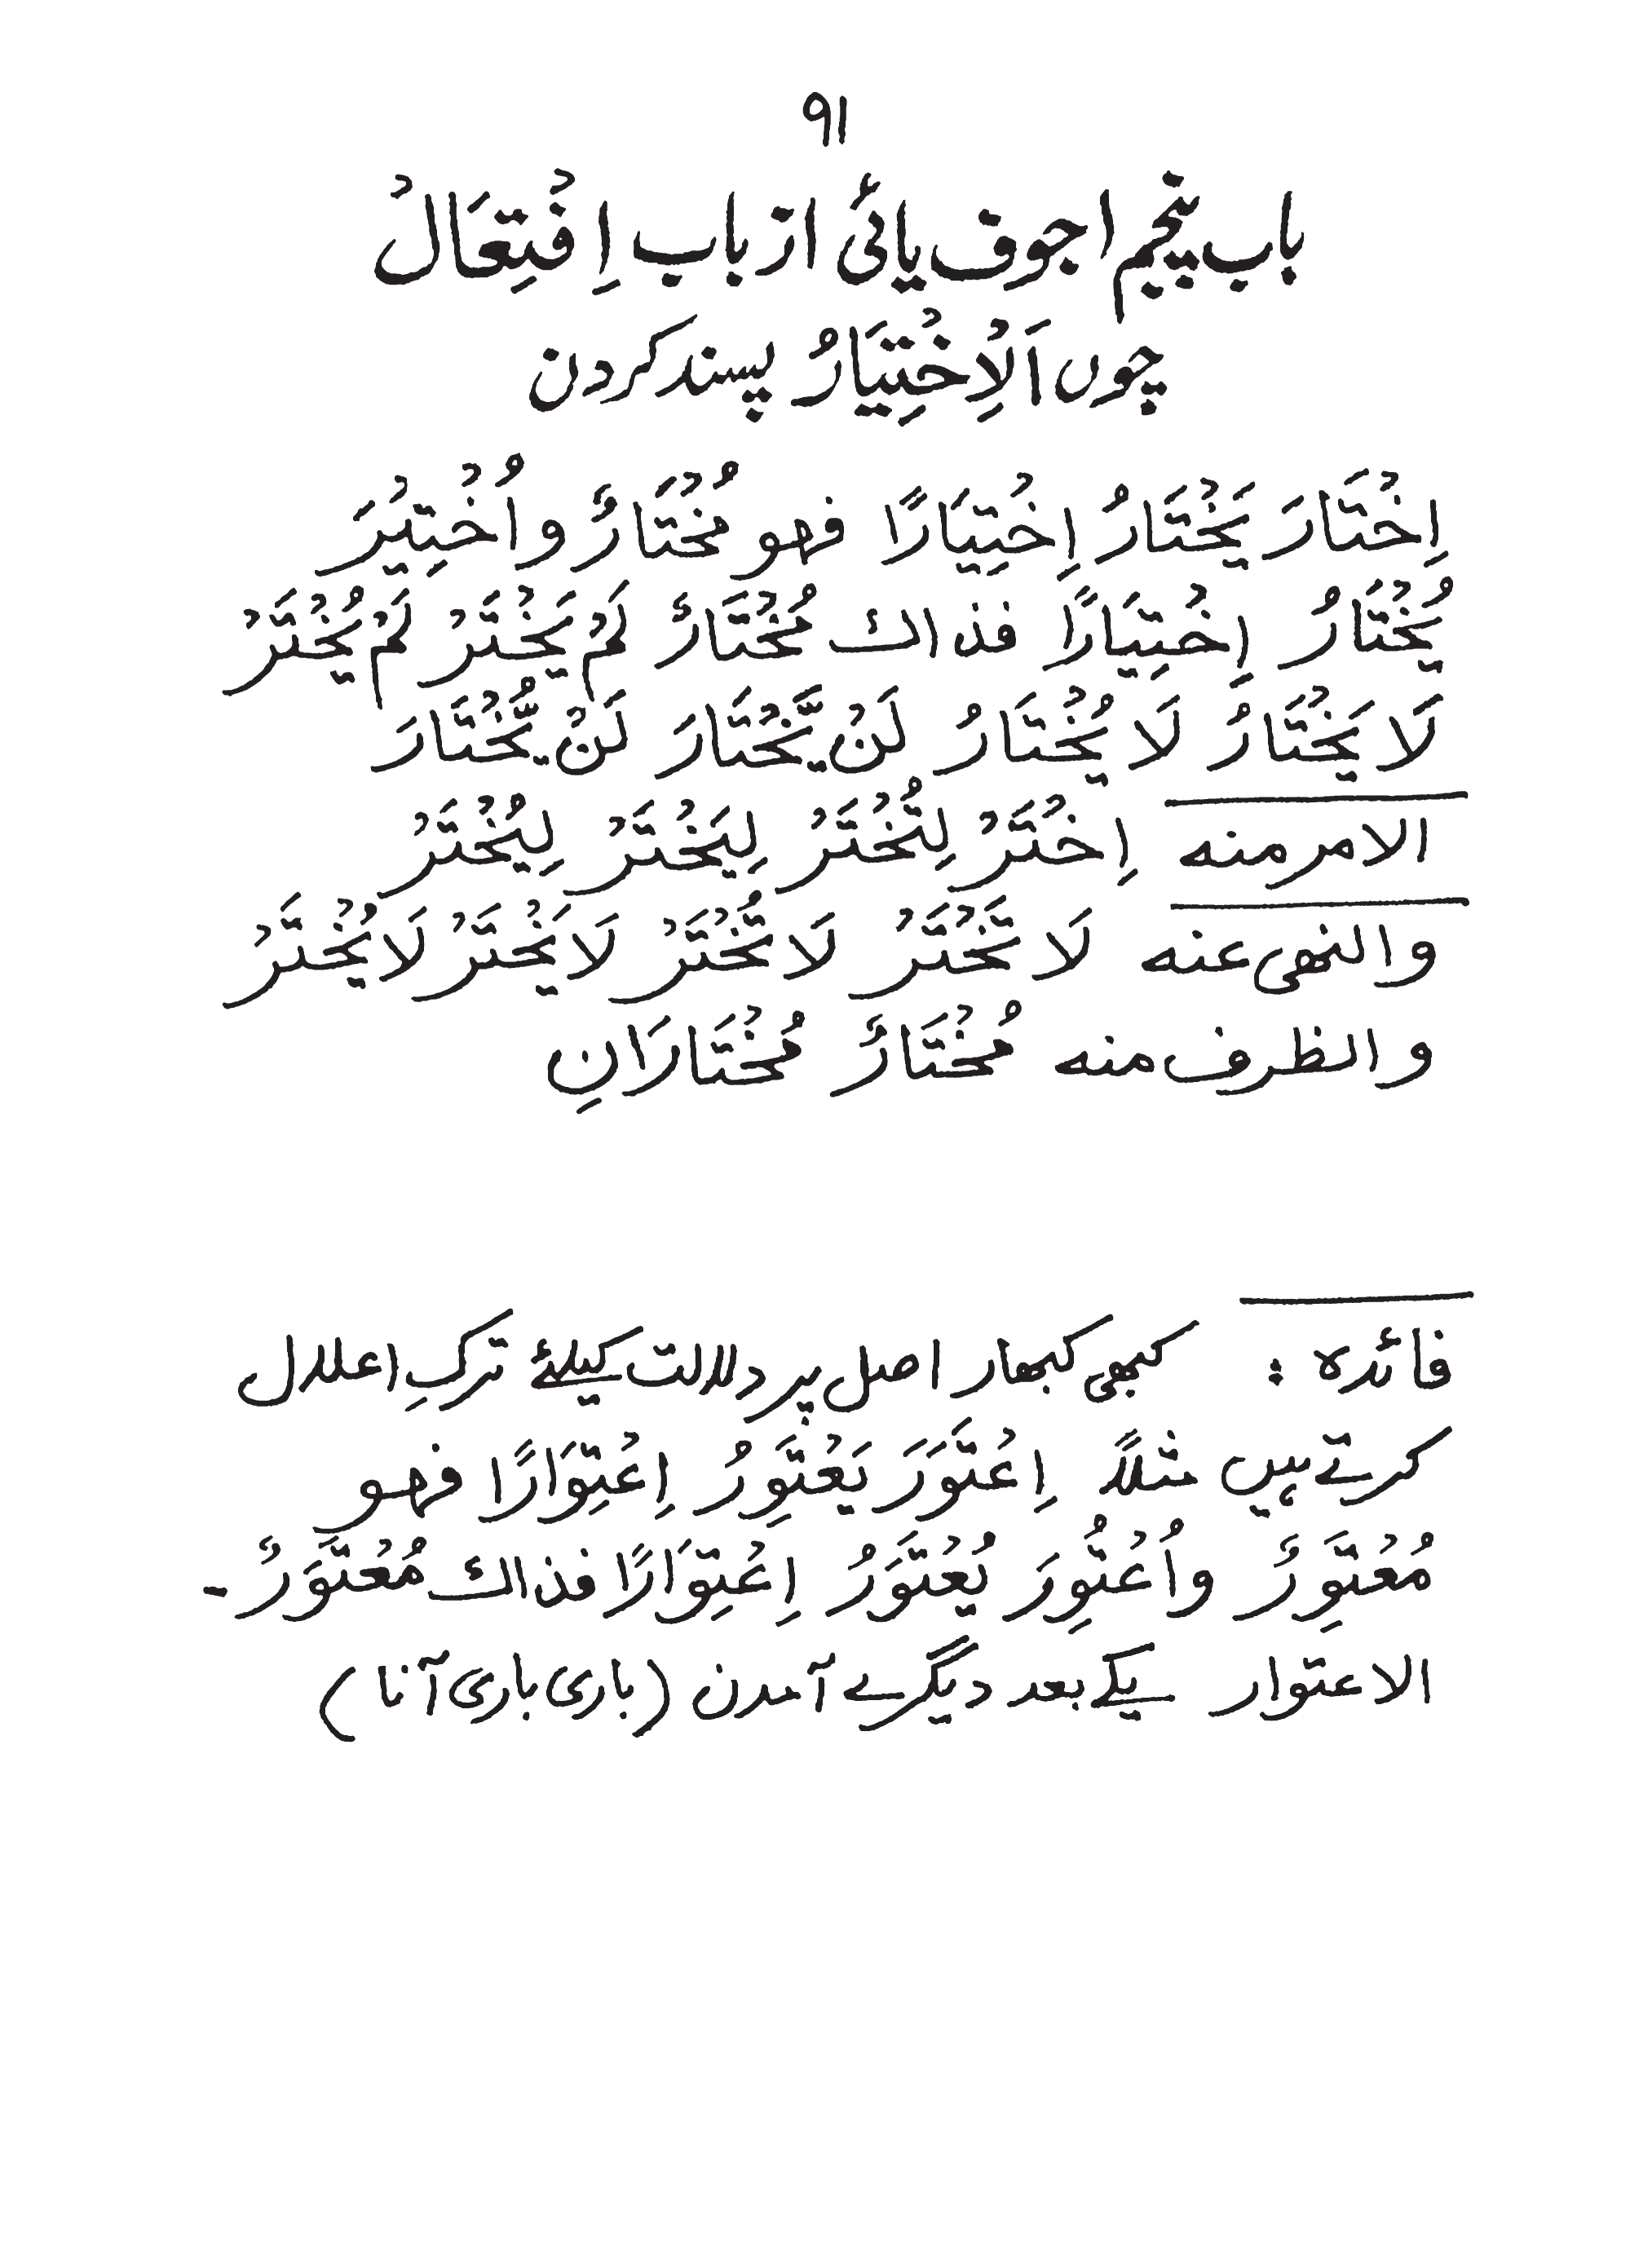 ۹۱
باب پنجم اجوف یائی از باب اِفْتِعَالْ
چوں اَلْاِخْتِيَارُ پسند کردن
اِخْتَارَ يَخْتَارُ اِخْتِيَارًا فهو مُخْتَارٌ و اُخْتِيْرَ
يُخْتَارُ اِخْتِيَارًا فذاك مُخْتَارٌ لَمْ يَخْتَرْ لَمْ يُخْتَرْ
لَا يَخْتَارُ لَا يُخْتَارُ لَنْ يَّخْتَارَ لَنْ يُّخْتَارَ
الامر منه اِخْتَرْ لِتُخْتَرْ لِيَخْتَرْ لِيُخْتَرْ
والنهى عنه لَا تَخْتَرْ لَا تُخْتَرْ لَا يَخْتَرْ لَا يُخْتَرْ
و الظرف منه مُخْتَارٌ مُخْتَارَانِ
فائدہ : کبھی کبھار اصل پر دلالت کیلئے ترکِ اعلال
کرتے ہیں مثلاً اِعْتَوَرَ يَعْتَوِرُ اِعْتِوَارًا فهو
مُعْتَوِرٌ و اُعْتُوِرَ يُعْتَوَرُ اِعْتِوَارًا فذاك مُعْتَوَرٌ -
الاعتوار یکے بعد دیگرے آمدن (باری باری آنا)